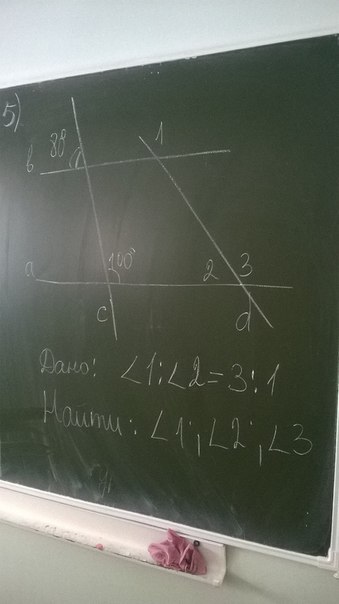 5)
1
b 80°
100°
a 2 3
c d
Дано: ∠1:∠2=3:1
Найти: ∠1; ∠2; ∠3